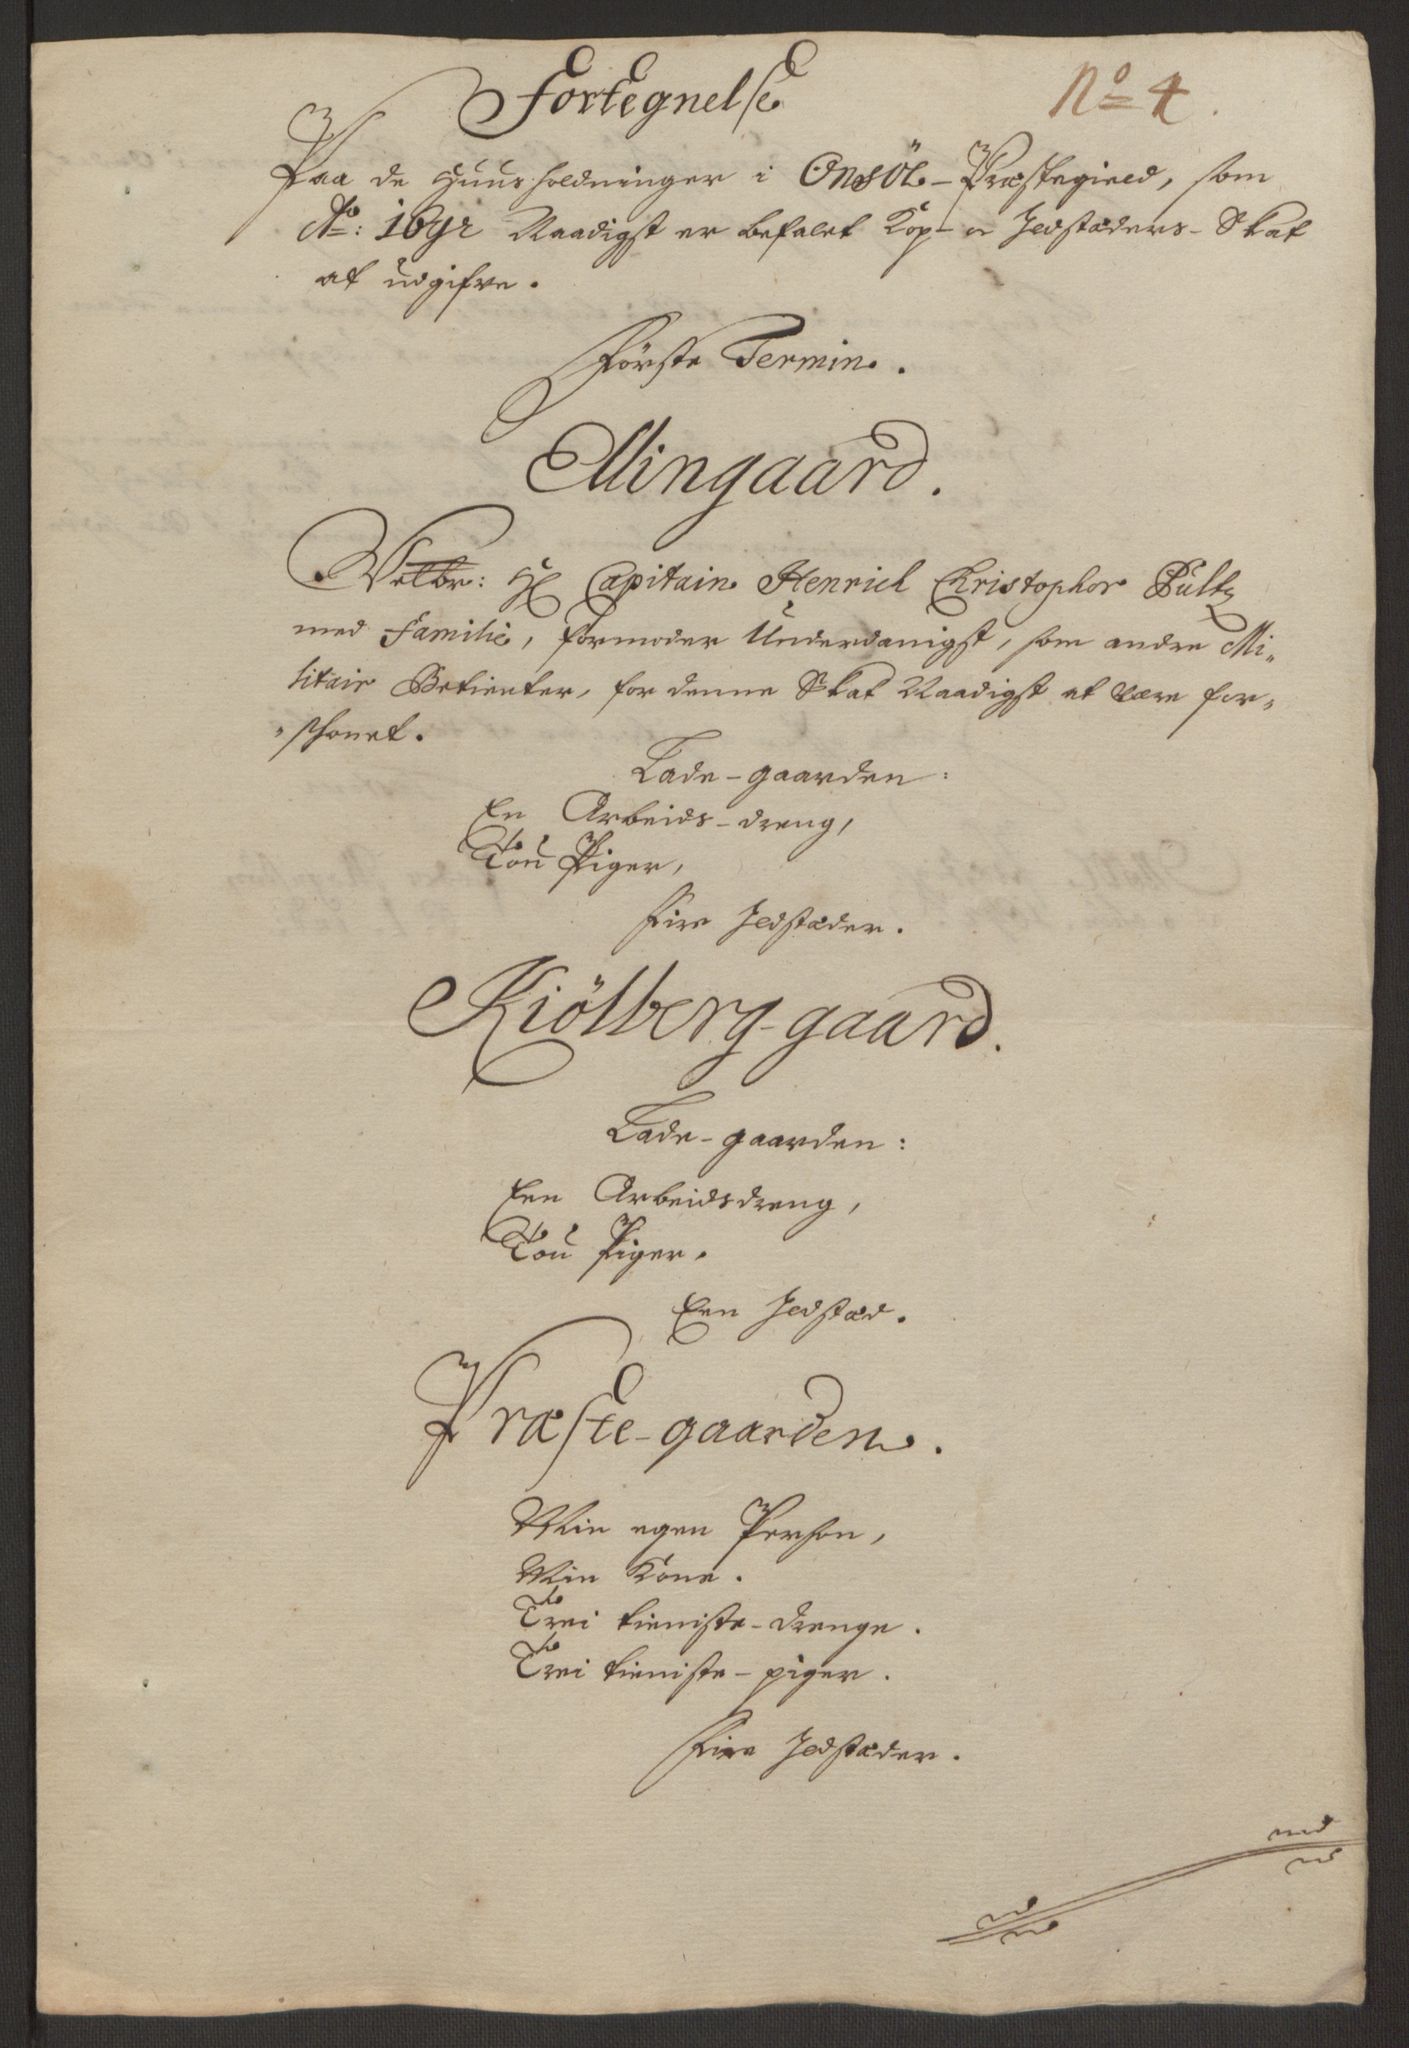 Fortegnelse
No 4.
Paa de Huusholdninger i Onsöe-Præstegield, som
Ao: 1691 Naadigst er befalet Kop- oc Ildstæders-Skat
at udgifve.
Förste Termin.
Ellingaard.
Velbr: Hr Capitain Henrich Christophor Bültz
med Familie, formoder Underdanigst, som andre Mi-
litair Betienter, for denne Skat Naadigst at være for-
-skonet.
Lade-gaarden:
En Arbeids-dreng,
Tou Piger,
Fire Ildstæder.
Kiölberg-gaard.
Lade-gaarden:
Een Arbeidsdreng,
Tou Piger.
Een Ildstæd.
Præste-gaarden.
Min egen Person,
Min Kone.
Trei tieniste-drenge.
Trei tieniste-piger.
Fire Ildstæder.